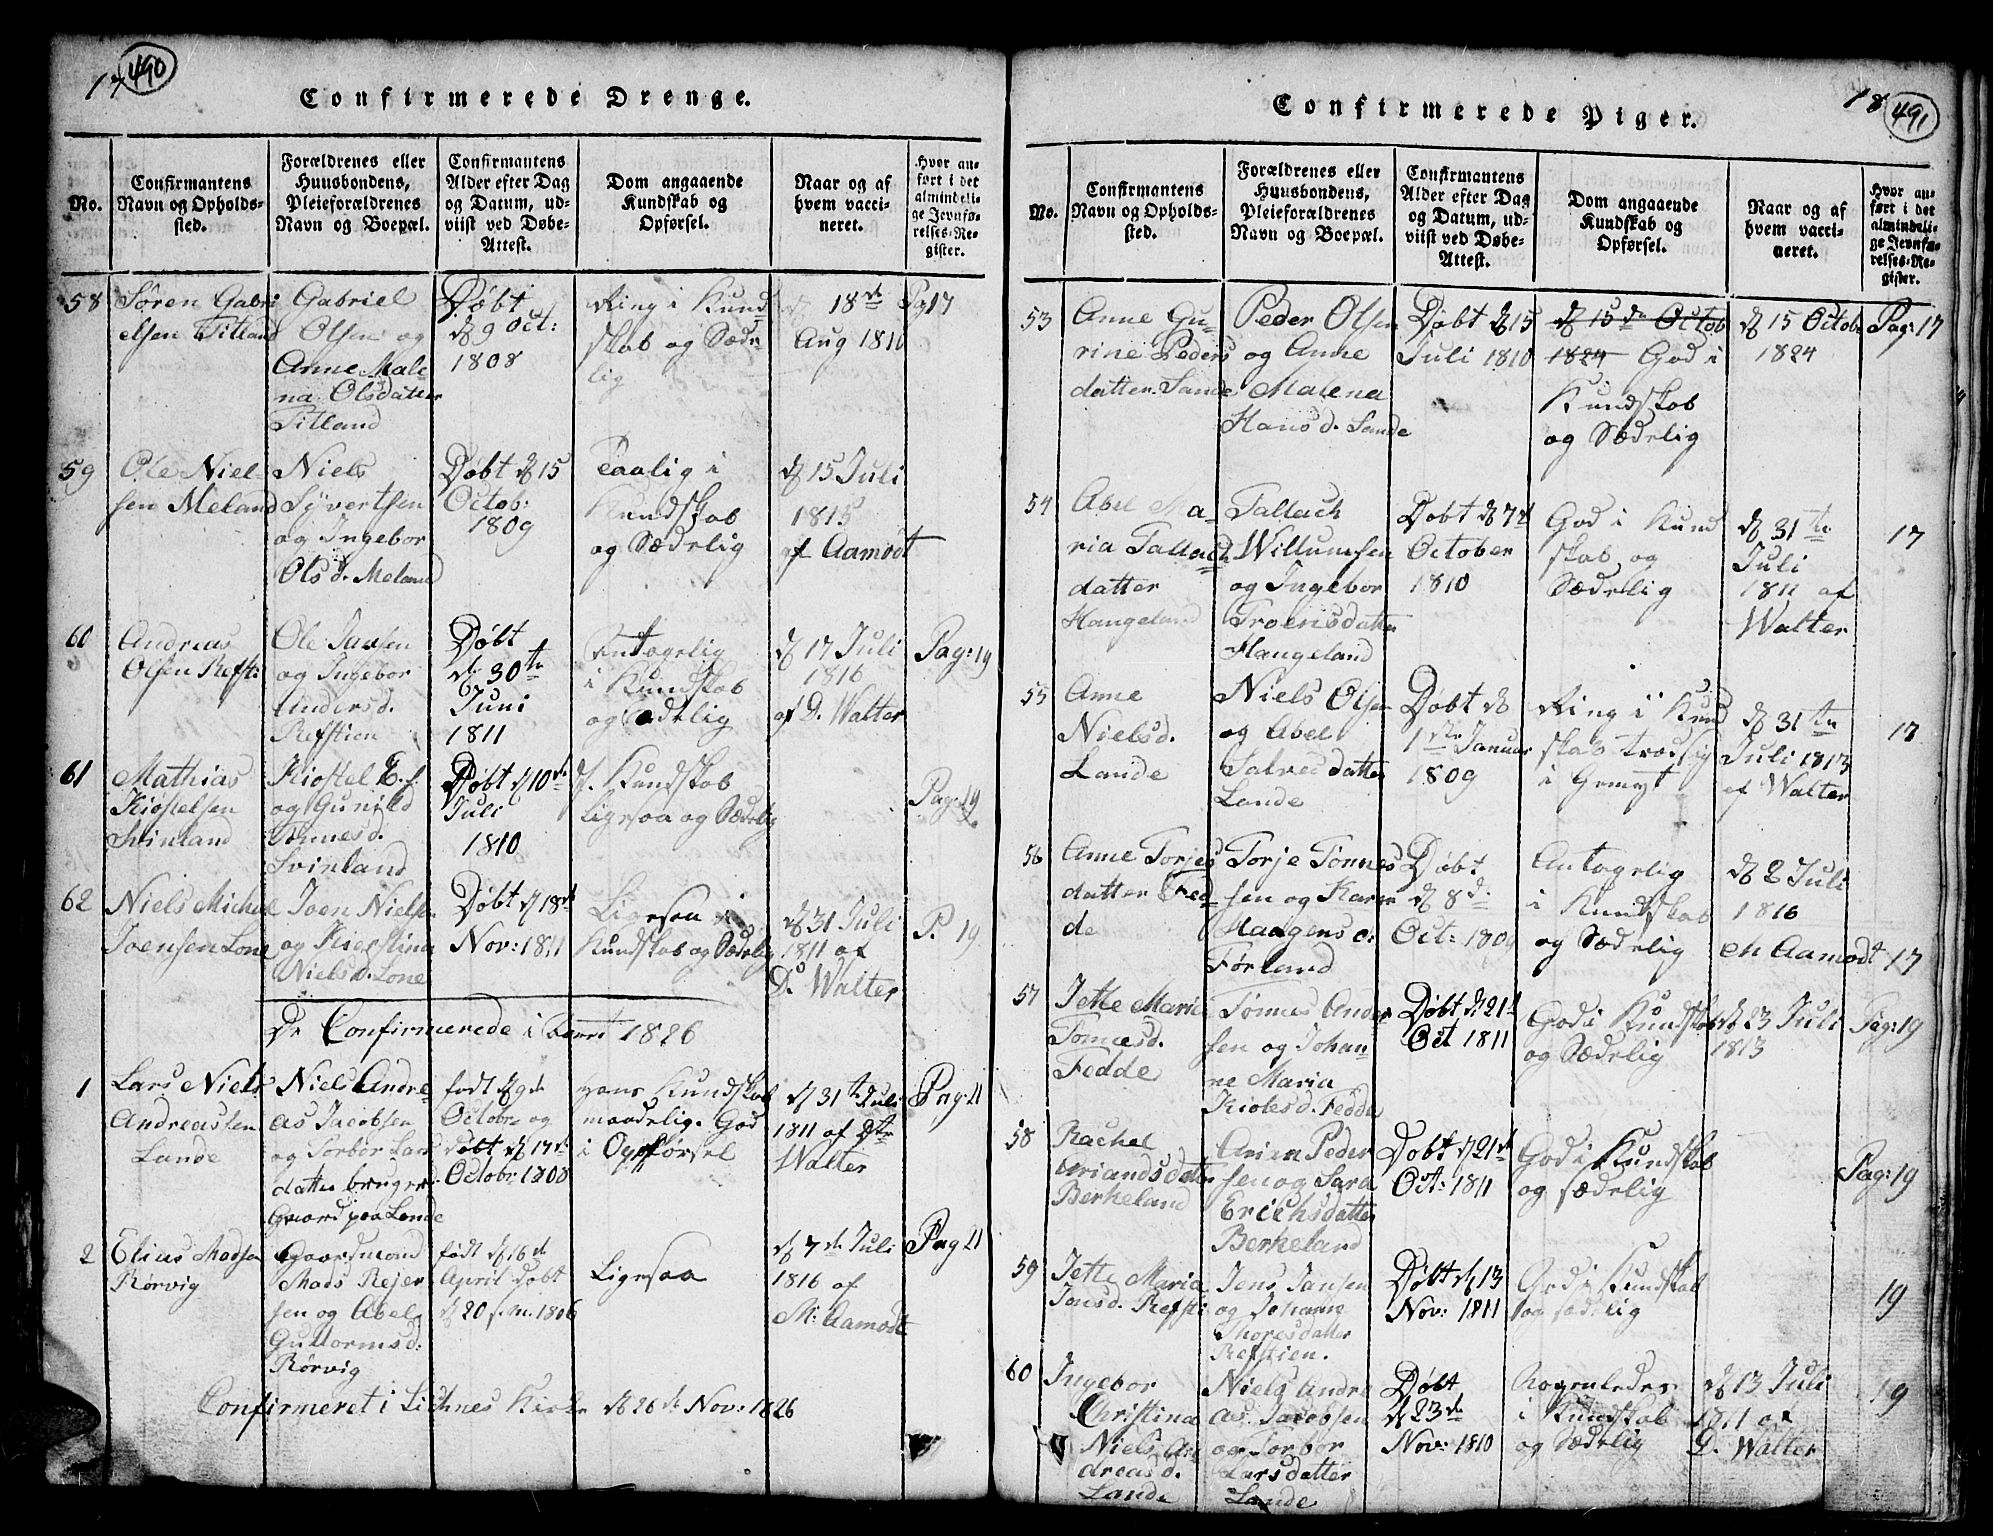 17 490
Confirmerede Drenge.
No.
Confirmantens
Navn og Opholds-
sted.
Forældrenes eller
Huusbondens,
Pleieforældrenes
Navn og Boepæl.
Confirmantens
Alder efter Dag
og Datum, ud-
viist ved Døbe-
Attest.
Dom angaaende
Kundskab og
Opførsel.
Naar og af
hvem vacci-
neret.
Hvor an-
ført i det
almindeli-
ge Jevnfø-
relses-Re-
gister.
58
Søren Gabri
elsen Titland
Gabriel
Olsen og
Anne Male
na Olsdatter
Titland
Døbt
d 9 Oct:
1808
Ring i Kund
skab og Sæde
lig
d 18de
Aug 1810
Pag 17
59
Ole Niel-
sen Meland
Niels
Syvertsen
og Ingebor
Ols d. Meland
Døbt d 15
Octob:
1809
Taalig i
Kundskab
og Sædelig
d 15 Juli
1815
af Aamodt
60
Andreas
Olsen Refsti:
Ole Jansen
og Ingebor
Anders d.
Refstien
Døbt
d 30te
Juni
1811
Antagelig
i Kundskab
og Sædelig
d 17 Juli
1816
af D. Walter
Pag: 19
61
Mathias
Kiøstelsen
Svinland
Kiøstel E. f.
og Gunild
Tønnes d.
Svinland
Døbt d 10de
Juli
1810
i Kundskab
Ligesaa og Sædelig
Pag: 19
62
Niels Michel
Joensen Lone
Joen Niels.
og Kierstina
Niels d. Lone
Døbt d 18de
Nov: 1811
Ligesaa i
Kundskab og Sædelig
d 31 Juli
1811 af
D. Walter
P. 19
De Confirmerede i Aaret 1826
1
Lars Niels
Andreassen
Lande
Niels Andre-
as Jacobsen
og Torbor Lars
datter bruger
Gaard paa Lande
født d 9de
Octobr og
døbt d 17de
Octobr 1808
hans Kundskab
maadelig. God
i Opførsel
d 31te Juli
1811 af Dr
Walter
Pag 21
2
Elias Madsen
Rørvig
Gaardmand
Mads Rejer
sen og Abel
Guttorms d:
Rørvig
født d 16de
April døbt
d 20 s.m. 1806
Ligesaa
d 7de Juli
1816 af
M: Aamodt
Pag 21
Confirmeret i Kirke d 26de Nov: 1826
18 491
Confirmerede Piger.
No.
Confirmantens
Navn og Opholds-
sted.
Forældrenes eller
Huusbondens,
Pleieforældrenes
Navn og Boepæl.
Confirmantens
Alder efter Dag
og Datum, ud-
viist ved Døbe-
Attest.
Dom angaaende
Kundskab og
Opførsel.
Naar og af
hvem vacci-
neret.
Hvor an-
ført i det
almindeli-
ge Jevnfø-
relses-Re-
gister.
53
Anne Gu-
rine Peders
datter Sande
Peder Olsen
og Anne
Malena
Hans d. Sande
Døbt d 15
Juli 1810
d 15de Octob
1824 God i
Kundskab
og Sædelig
d 15 Octobr
1824
Pag: 17
54
Abel Ma-
ria Tallach
datter
Haugeland
Tallach
Willumsen
og Ingebor
Troensdatter
Haugeland
Døbt d 7de
October
1810
God i Kund
skab og
Sædelig
d 31te
Juli
1811 af
Walter
17
55
Anne
Niels d.
Lande
Niels Olsen
og Abel
Salves datter
Lande
Døbt d
1ste Januar
1809
Ring i Kund
skab trodsig
i Gemyt
d 31te
Juli 1813
af Walter
17
56
Anne Torjes
datter Fed
de
Torje Tønnes
sen og Karen
Haagens d:
Førland
Døbt
d 8de
Oct: 1809
Antagelig
i Kundskab
og Sædelig
d 2 Juli
1816
M Aamodt
17
57
Jette Maria
Tønnes d.
Fedde
Tønnes Ander
sen og Johan
ne Maria
Kioles d. Fedde
Døbt d 21de
Oct 1811
God i Kundskab
og Sædelig
d 23 Juli
1813
Pag: 19
58
Rachel
Ariansdatter
Berkeland
Arian Peder
sen og Sara
Erichsdatter
Berkeland
Døbt d 21de
Oct: 1811
God i Kundskab
og sædelig
Pag: 19
59
Jette Maria
Jens d. Refsti
Jens Jansen
og Johanne
Thoresdatter
Refstien.
Døbt d 13
Nov: 1811
God i Kundskab
og sædelig
19
60
Ingebor
Christina
Niels An
dreas d.
Lande
Niels Andre
as Jacobsen
og Torbor
Larsdatter
Lande
Døbt
d 23de
Nov: 1810
Nogenledes
i Kundskab
og Sædelig
d 13 Juli
1811 af
D. Walter
19